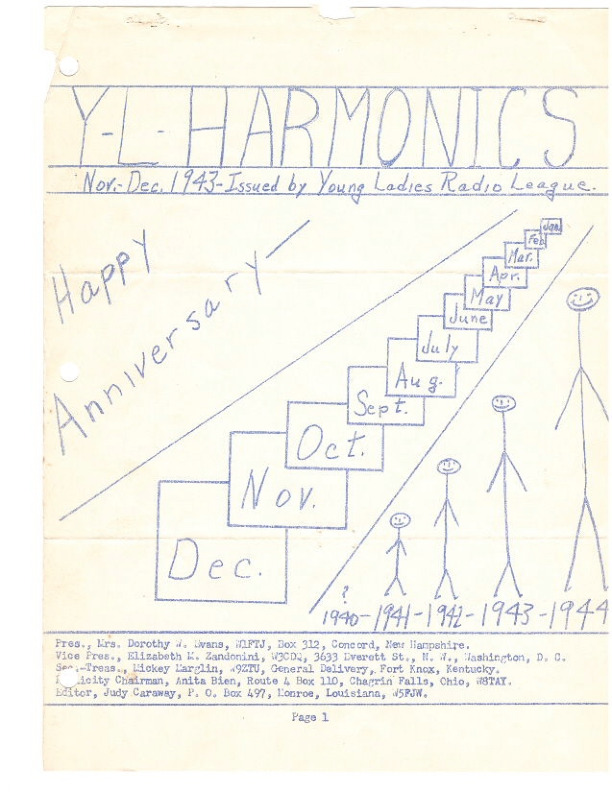 Y-L-HARMONICS
Nov.-Dec. 1943-Issued by Young Ladies Radio League.
Happy
Anniversary
Jan.
Feb
Mar.
Apr.
May
June
July
Aug.
Sept.
Oct.
Nov.
Dec.
?
1940-1941-1942-1943-1944
Pres., Mrs. Dorothy W. Evans, W1FTJ, Box 312, Concord, New Hampshire.
Vice Pres., Elizabeth M. Zandonini, W3CDQ, 3633 Everett St., N. W., Washington, D. C.
Treas., Mickey Marglin, W9ZTU, General Delivery, Fort Knox, Kentucky.
Chairman, Anita Bien, Route 4 Box 110, Chagrin Falls, Ohio, W8TAY.
Editor, Judy Caraway, P. O. Box 497, Monroe, Louisiana, W5FJW.
Page 1